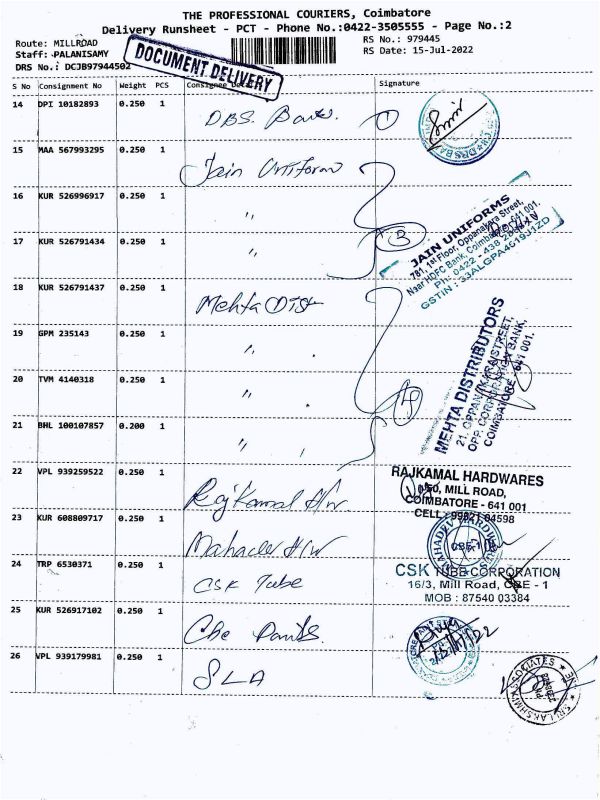 THE PROFESSIONAL COURIERS, Coimbatore
Delivery Runsheet - PCT - Phone No.:0422-3505555 - Page No.:2
Route: MILLROAD
RS No.: 979445
Staff: PALANISAMY
RS Date: 15-Jul-2022
DRS No.: DCJB97944502
DOCUMENT DELIVERY
S No Consignment No Weight PCS Consignee Signature
14 DPI 10182893 0.250 1 DBS. Bank. 1
15 MAA 567993295 0.250 1 Jain Uniform
16 KUR 526996917 0.250 1 "
17 KUR 526791434 0.250 1 " 3
JAIN UNIFORMS
781, 1st Floor, Oppanakara Street,
Near HDFC Bank, Coimbatore-641 001.
Ph: 0422 - 438
GSTIN : 33ALGPA4519J1ZD
18 KUR 526791437 0.250 1 Mehta Dist
19 GPM 235143 0.250 1 "
20 TVM 4140318 0.250 1 " 4
21 BHL 100107857 0.200 1 "
MEHTA DISTRIBUTORS
21, OPPANAKARA STREET,
OPP. CORPORATION BANK,
COIMBATORE - 641 001.
22 VPL 939259522 0.250 1 Rajkamal H/w
RAJKAMAL HARDWARES
MILL ROAD,
COIMBATORE - 641 001
CELL: 04598
23 KUR 608809717 0.250 1 Mahadev H/w
MAHADEV HARDWARES
CBE-1
24 TRP 6530371 0.250 1 CSK Tube
CSK TUBE CORPORATION
16/3, Mill Road, CBE - 1
MOB : 87540 03384
25 KUR 526917102 0.250 1 Cbe Paints.
26 VPL 939179981 0.250 1 SLA
SRI LAKSHMI ASSOCIATES